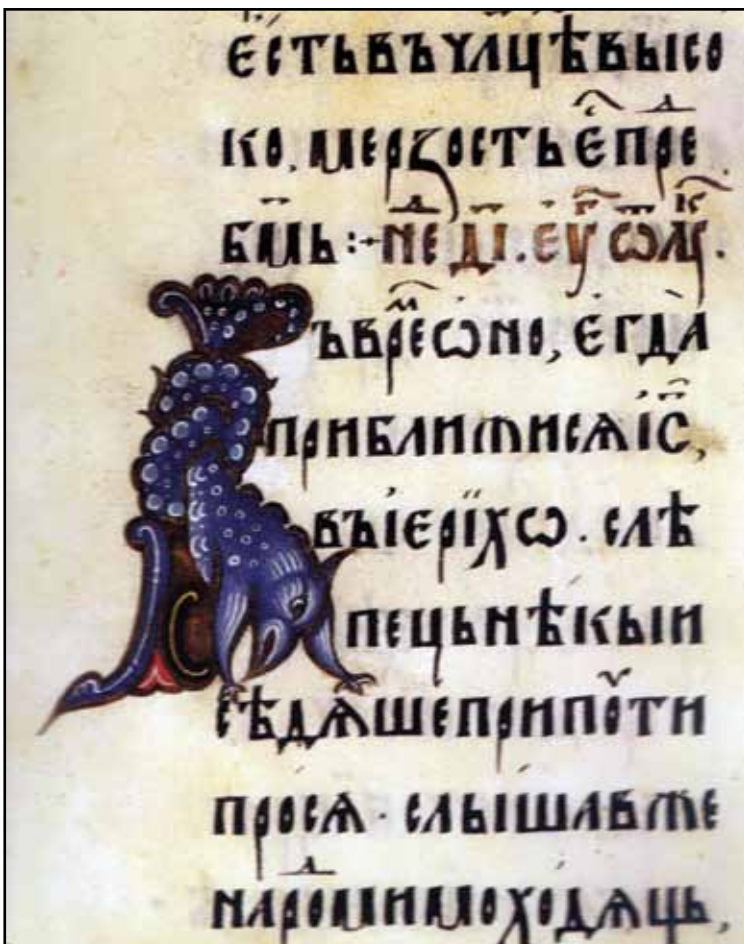 єстьвъчлцѣвысо
ко, мерзостьєпрⷣе
бг҃мъ :· неⷣ д҃і. єѵⷢ ѿлꙋⷦ.
ъвреⷨѡно, єгда
приближисѧі҃с,
въієріхѡ. слѣ
пєцьнѣкыи
сѣдѧшєприпꙋти
просѧ · слышавжє
нароⷣмимоходѧщь,